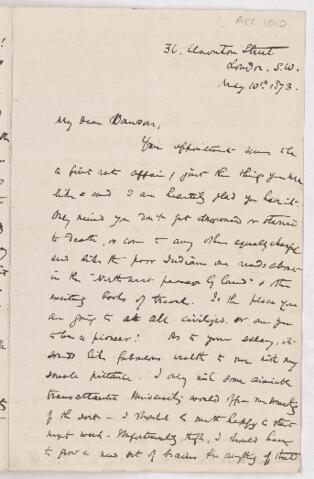 ACC: 1010
36. Street
London. S.W.
May 10th 1873.
My dear Dawson,
Your appointment seems to be
a first rate affair, just the thing you wd
like & I am heartily glad you have it.
Only mind you don't get drowned or starved
to death, or come to any other equally
end like the poor Indians one reads about
in the "North west passage by land" & other
exciting books of travel. Is the place you
are going to at all civilized, or are you
to be a pioneer? As to your salary, it
sounds like fabulous wealth to me with my
small pittance. I only wish some amiable
transatlantic University would offer me something
of the sort - I should be much happy to start
next week. Unfortunately, tho', I should have
to grow a new set of brains for anything of that